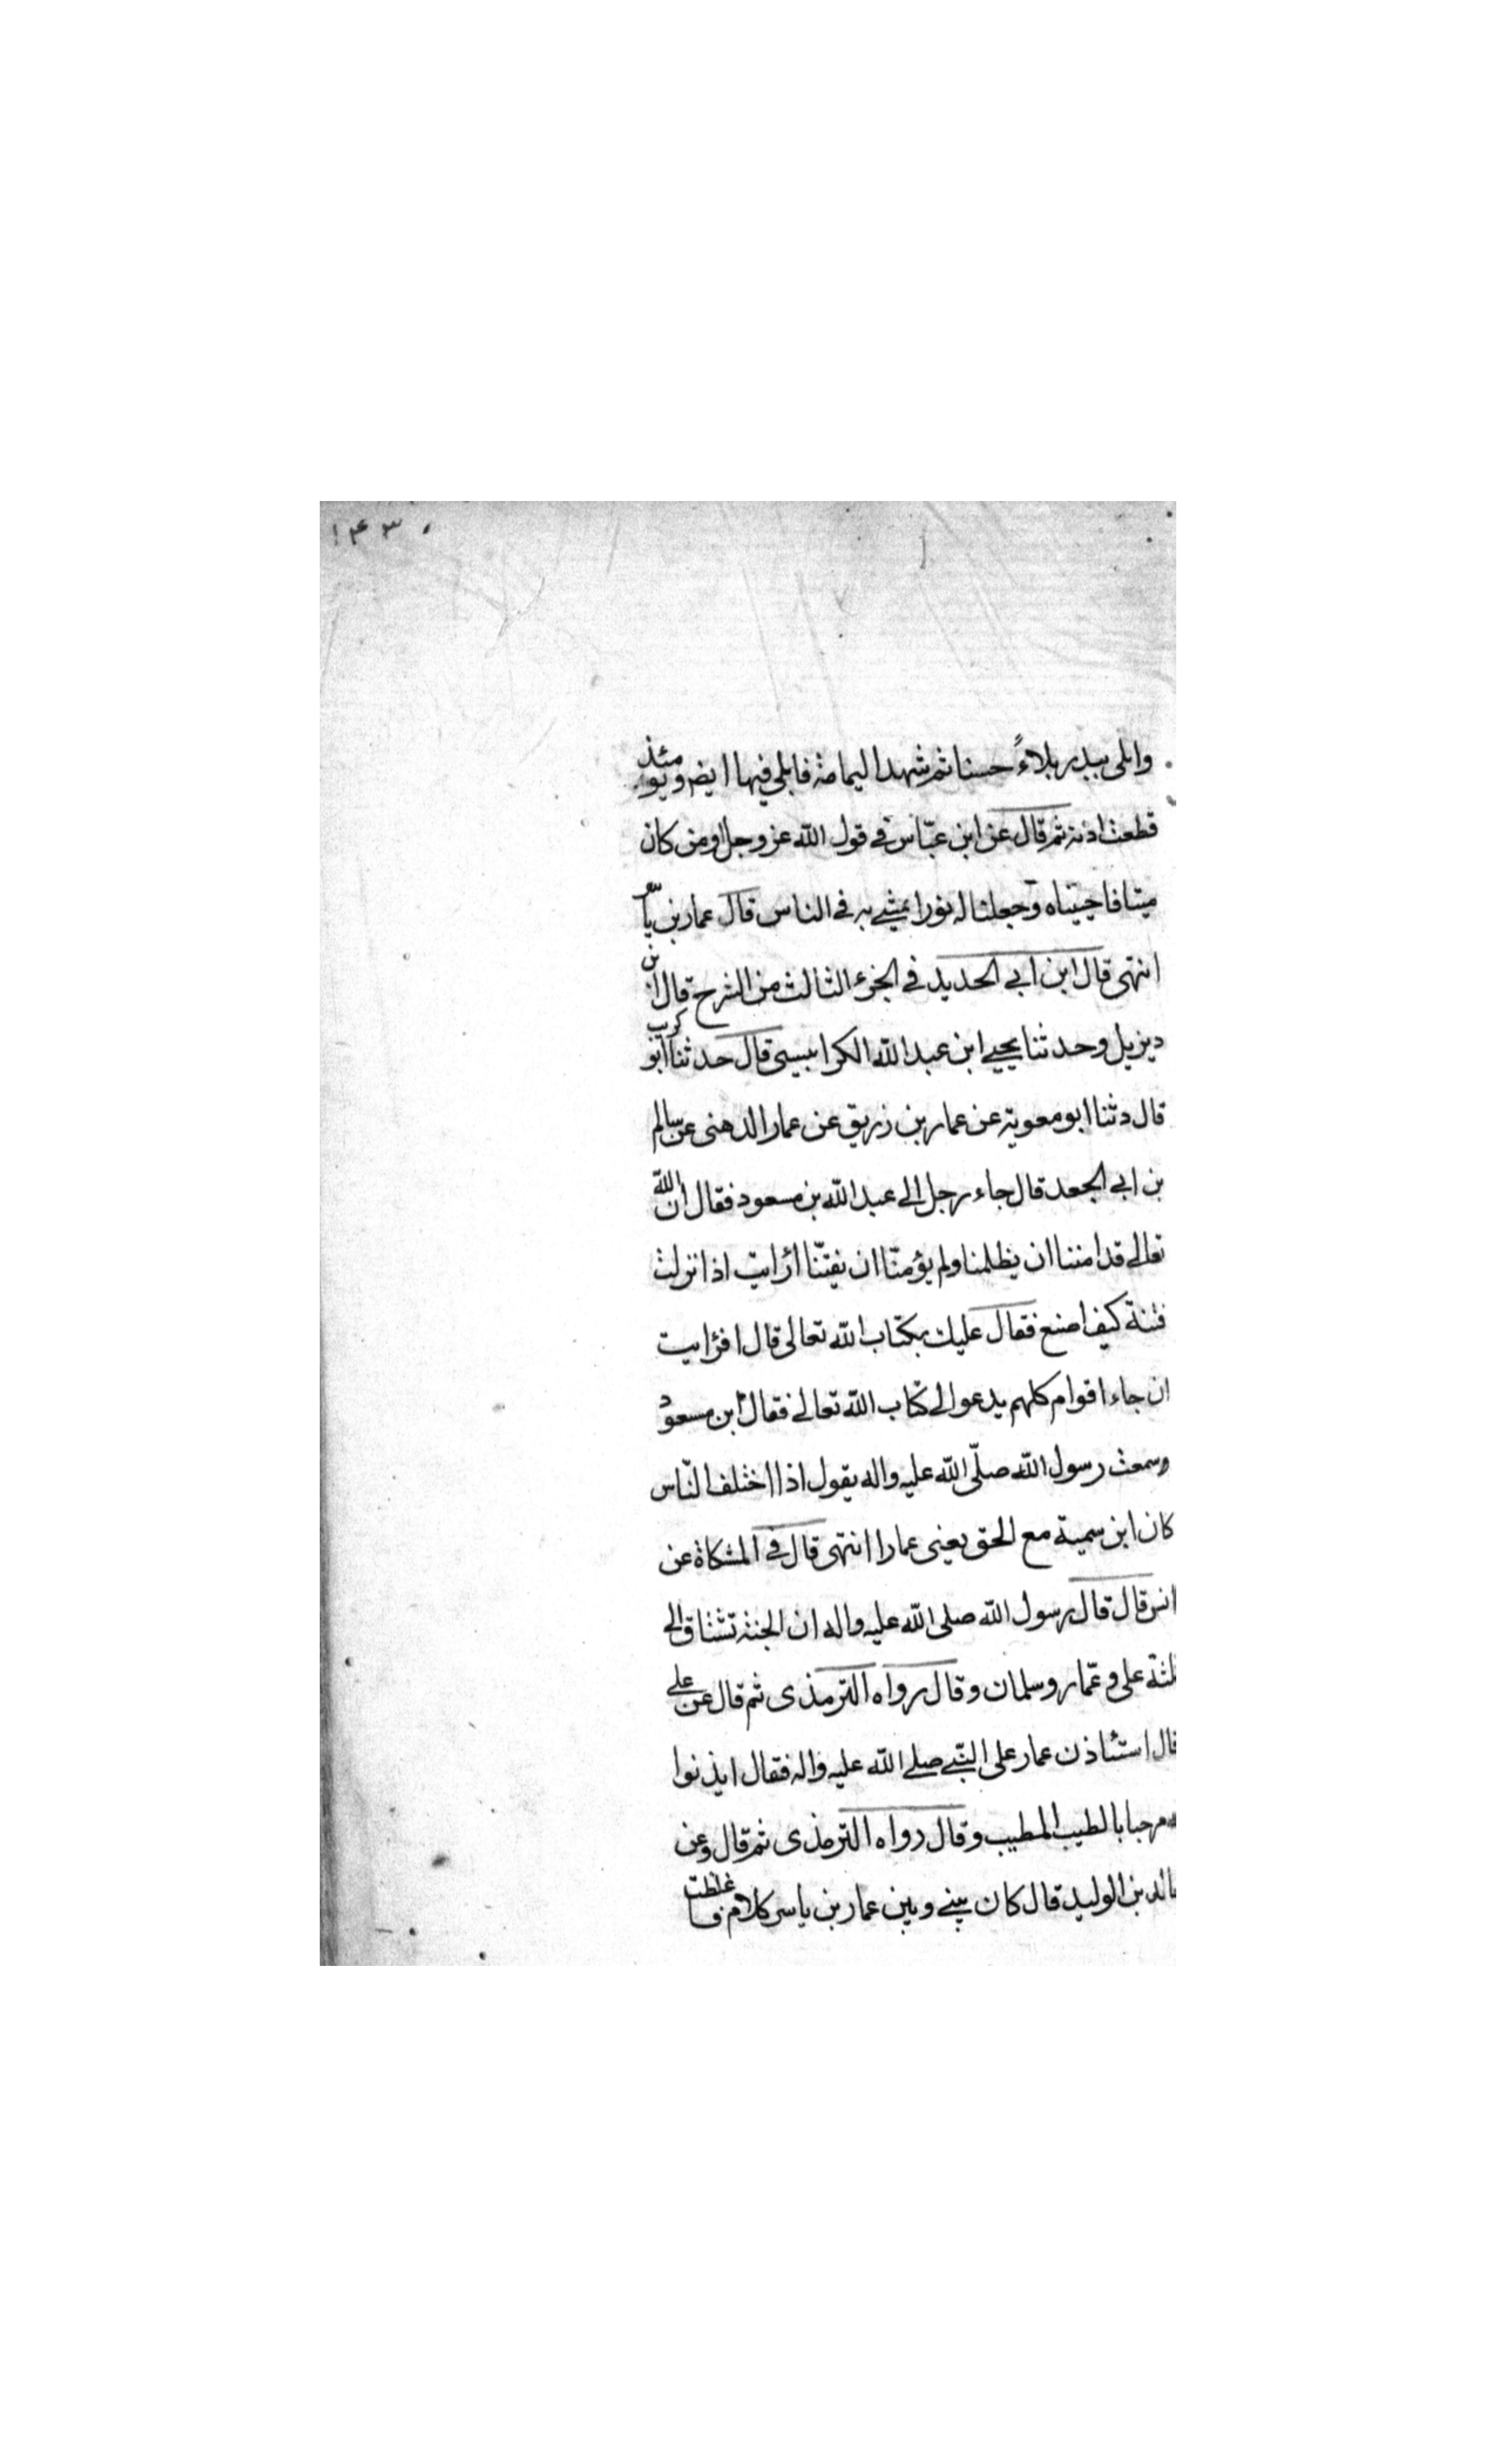 وابلى ببدر بلاءً حسنا ثم شهد اليمامة فابلى فيها ايض ويومئذ
قطعت اذنه ثم قال عن ابن عبّاس في قول الله عز وجل اومن كان
ميتا فاحييناه وجعلنا له نورا يمشي به في الناس قال عمار بن ياسر
انتهى قال ابن ابي الحديد في الجزء الثالث من الشرح قال ابن
ديزيل وحدثنا يحيي ابن عبد الله الكرابيسى قال حدثنا ابو كريب
قال دثنا ابو معوية عن عمار بن زريق عن عمار الدهنى عن سالم
بن ابي الجعد قال جاء رجل الى عبد الله بن مسعود فقال ان الله
تعالى قد امننا ان يظلمنا ولم يؤمنّا ان يفتنّا أرأيت اذا نزلت
فتنة كيف اصنع فقال عليك بكتاب الله تعالى قال افرأيت
ان جاء اقوام كلهم يدعو الى كتاب الله تعالى فقال ابن مسعود
وسمعت رسول الله صلّى الله عليه واله يقول اذا اختلف النّاس
كان ابن سمية مع الحق يعنى عمارا انتهى قال في المشكاة عن
انس قال قال رسول الله صلى الله عليه واله ان الجنة تشتاق الى
ثلثة على وعمّار وسلمان وقال رواه الترمذى ثم قال عن على
قال استئاذن عمار على النّبي صلى الله عليه واله فقال ايذنوا
له مرحبا بالطيب المطيب وقال رواه الترمذى ثم قال وعن
خالد بن الوليد قال كان بيني وبين عمار بن ياسر كلام فاغلظت